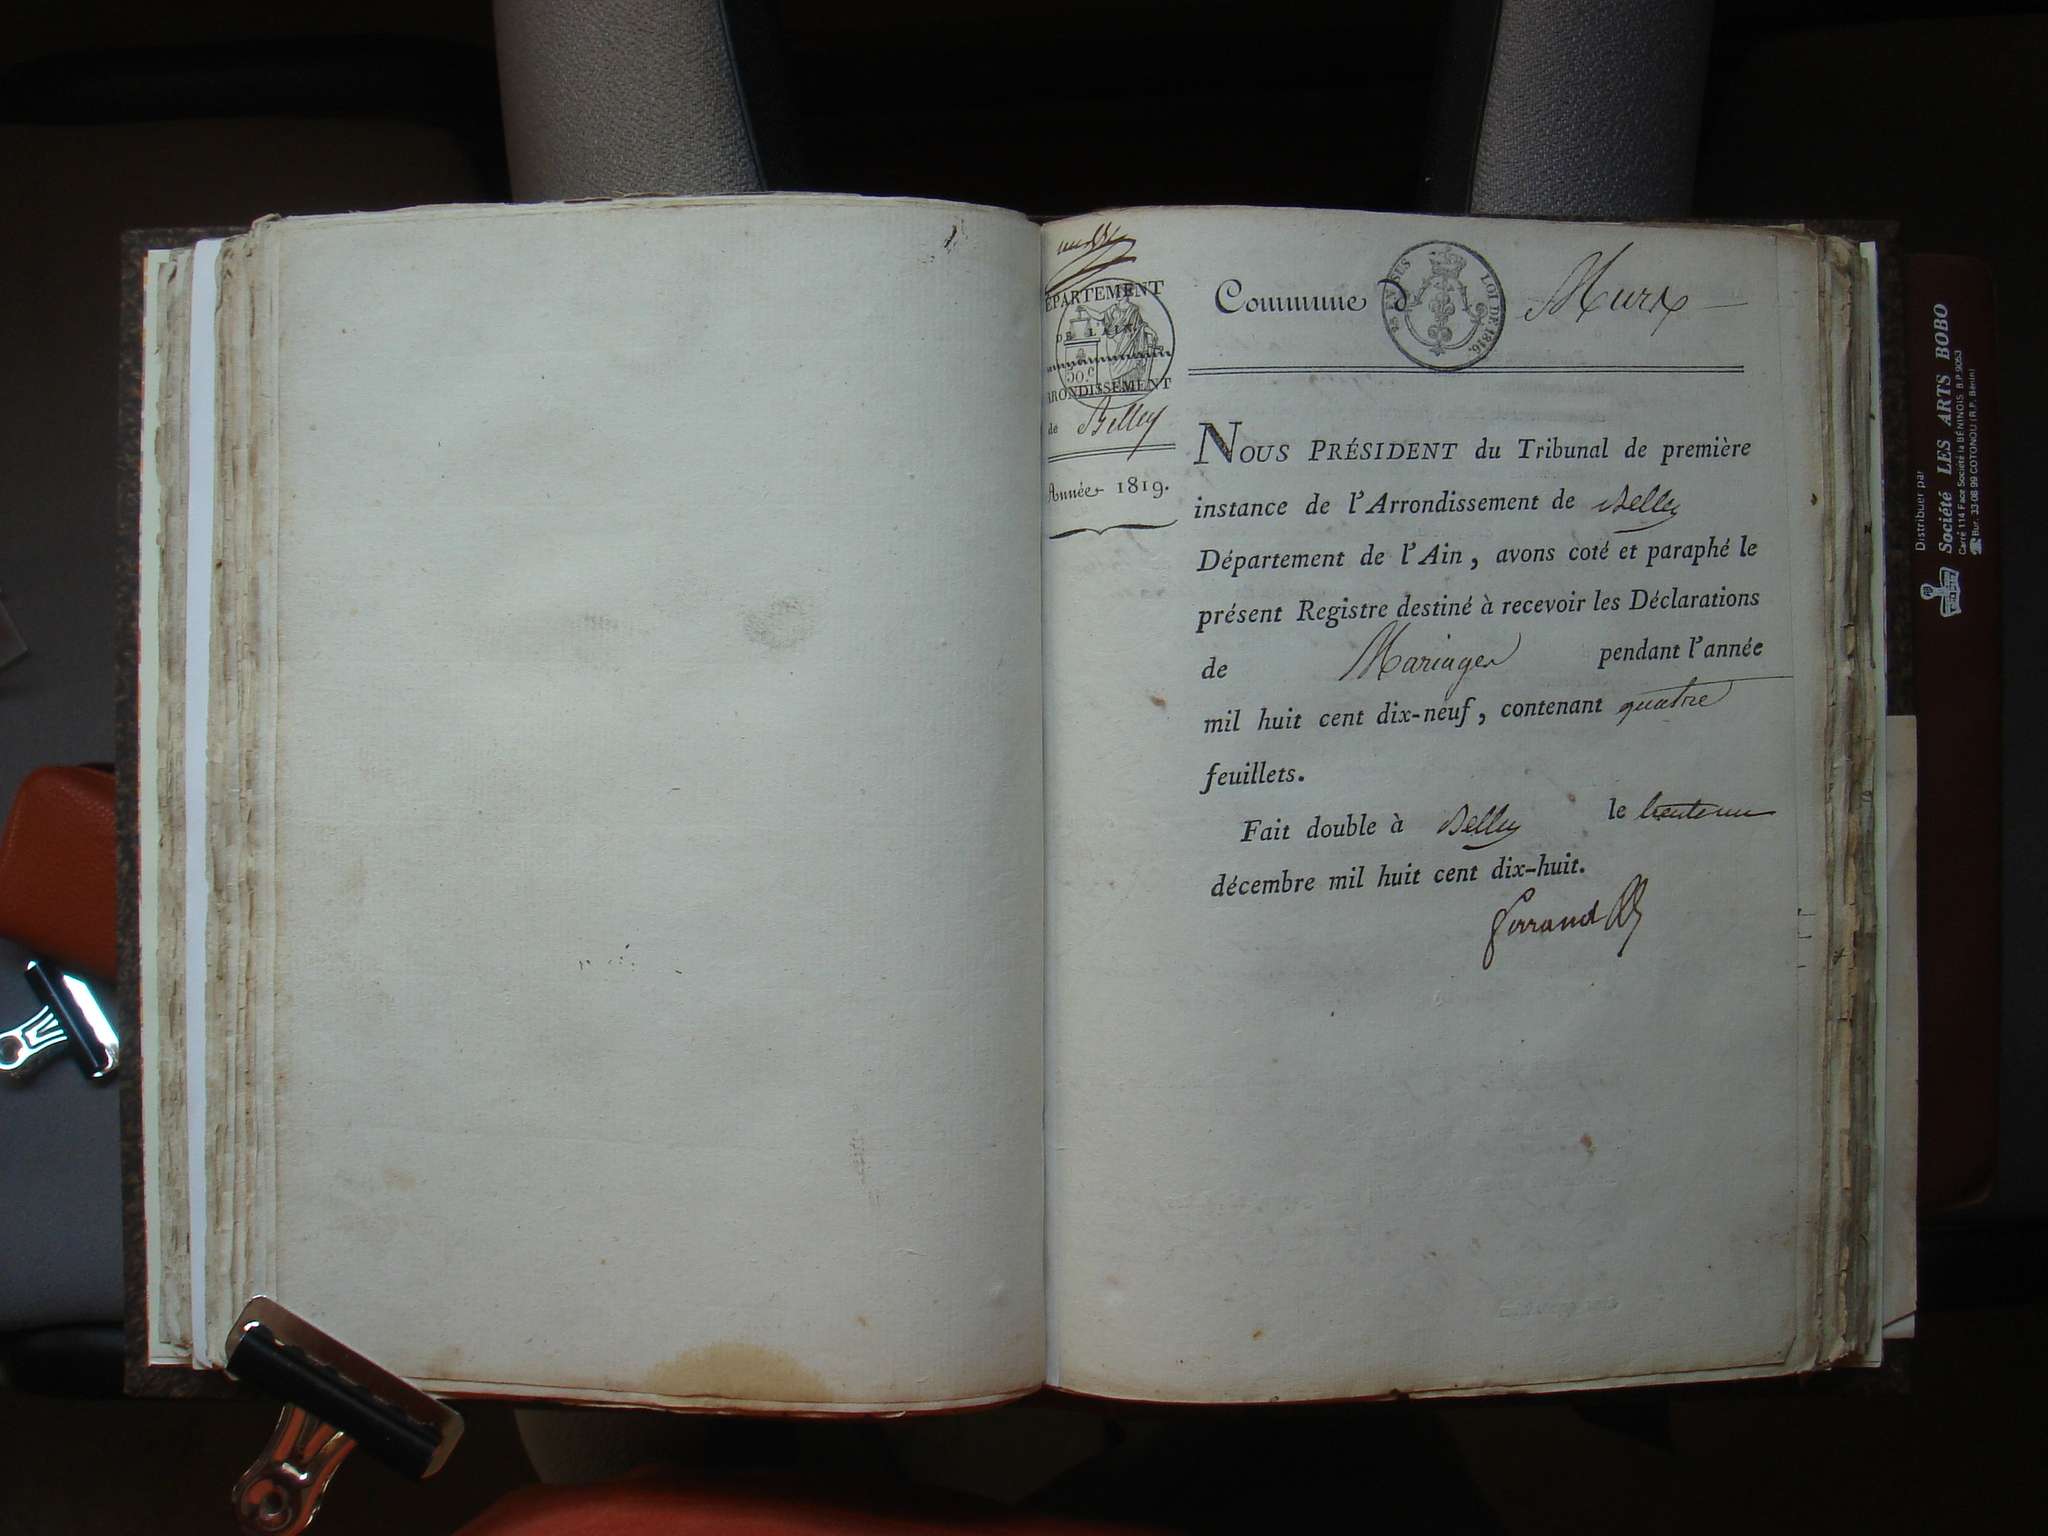 DÉPARTEMENT
DE L'AIN
50c
ARRONDISSEMENT
de Belley
Année 1819.
Commune d Murs
LOI DE 1816.
NOUS PRÉSIDENT du Tribunal de première
instance de l'Arrondissement de Belley
Département de l'Ain, avons coté et paraphé le
présent Registre destiné à recevoir les Déclarations
de Mariages pendant l'année
mil huit cent dix-neuf, contenant quatre
feuillets.
Fait double à Belley le trente un
décembre mil huit cent dix-huit.
Ferrand
Distribuer par
Société LES ARTS BOBO
Carré 114 Face Société la BÉNINOIS B.P. 9053
Bur. 33 08 99 COTONOU (R.P. Bénin)